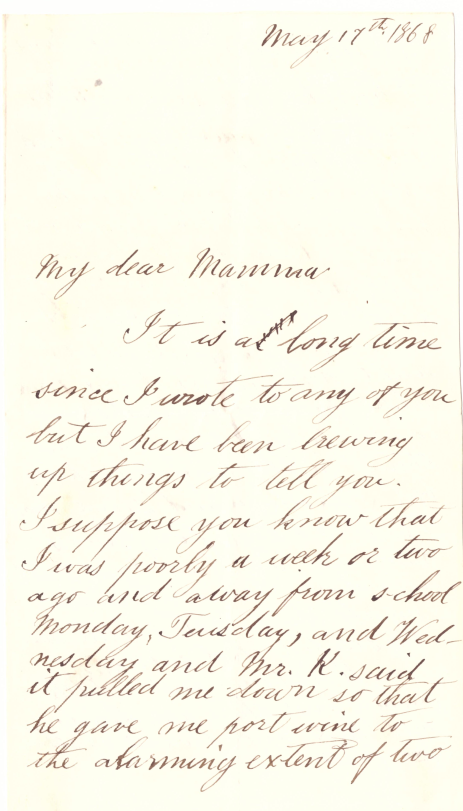 May 17th 1868
My dear Mamma
It is a long time
since I wrote to any of you
but I have been brewing
up things to tell you.
I suppose you know that
I was poorly a week or two
ago and away from school
Monday, Teusday, and Wed-
nesday and Mr. K. said
it pulled me down so that
he gave me port wine to
the alarming extent of two